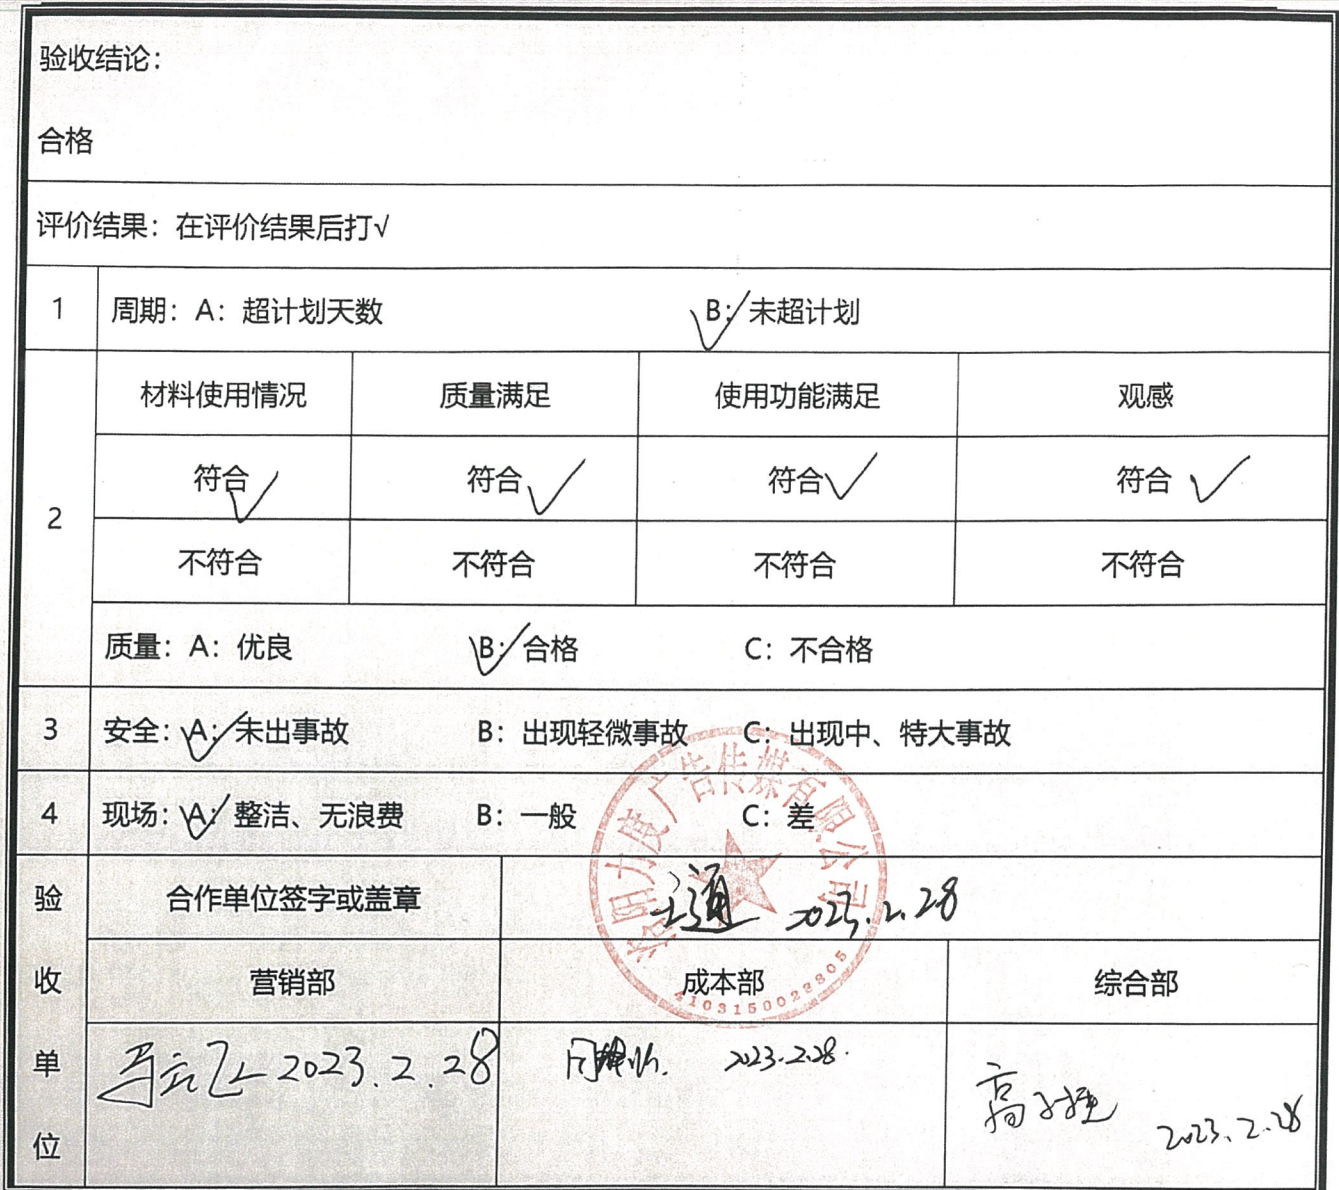 验收结论：
合格
评价结果：在评价结果后打√
1 周期：A：超计划天数 B：√未超计划
材料使用情况 质量满足 使用功能满足 观感
符合√ 符合√ 符合√ 符合√
2
不符合 不符合 不符合 不符合
质量：A：优良 B：√合格 C：不合格
3 安全：A：√未出事故 B：出现轻微事故 C：出现中、特大事故
4 现场：A：√整洁、无浪费 B：一般 C：差
洛阳力度广告传媒有限公司
验收单位
合作单位签字或盖章 王通 2023.2.28
营销部 成本部 综合部
4103150023805
2023.2.28 2023.2.28
高 2023.2.28